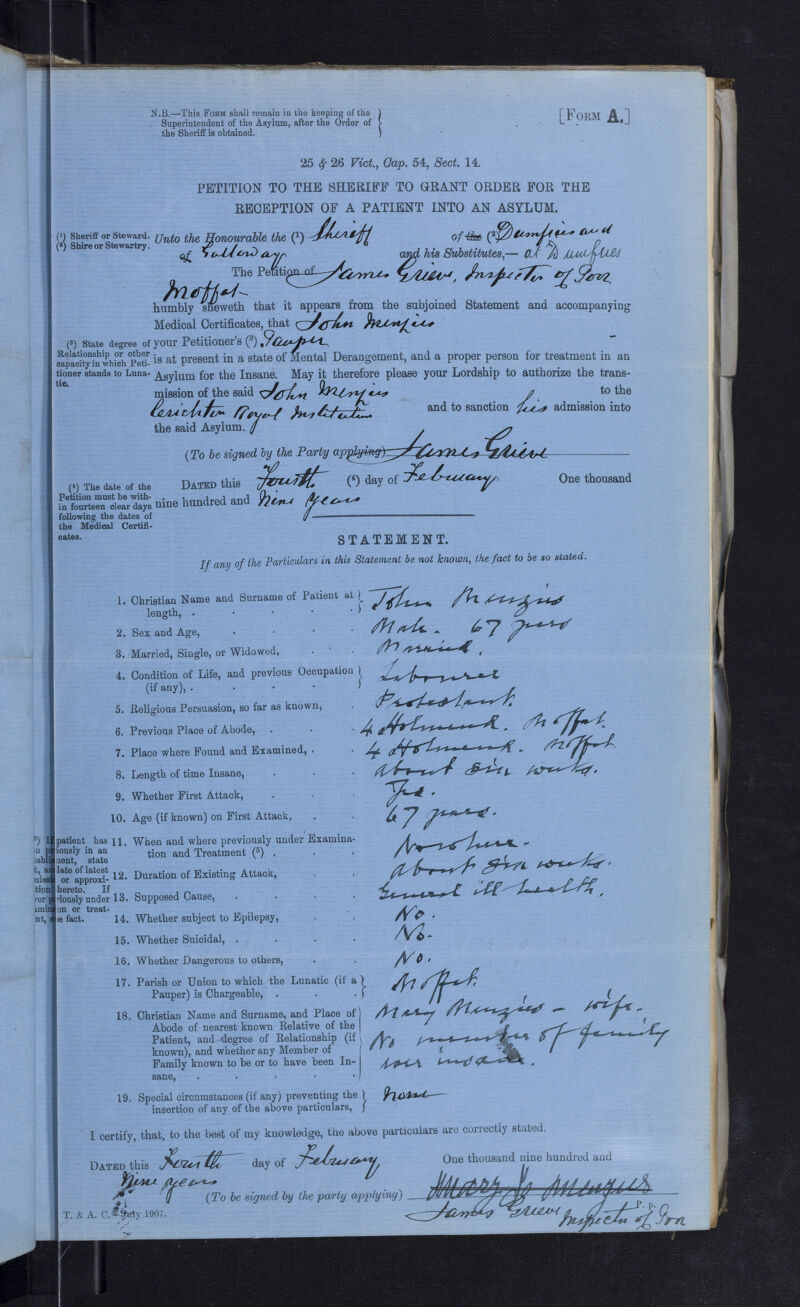 N.B.—This Form shall remain in the keeping of the
Superintendent of the Asylum, after the Order of
the Sheriff is obtained.
[Form A.]
25 & 26 Vict., Cap. 54, Sect. 14.
PETITION TO THE SHERIFF TO GRANT ORDER FOR THE
RECEPTION OF A PATIENT INTO AN ASYLUM.
(1) Sheriff or Steward.
(2) Shire or Stewartry.
Unto the Honourable the (1) Sheriff of the (2) Dumfries and
of Galloway and his Substitutes,— at Dumfries
The Petition of James Grieve, Inspector of Poor
Moffat
humbly sheweth that it appears from the subjoined Statement and accompanying
Medical Certificates, that John Menzies
(3) State degree of
Relationship or other
capacity in which Peti-
tioner stands to Luna-
tic.
your Petitioner's (3) Pauper
is at present in a state of Mental Derangement, and a proper person for treatment in an
Asylum for the Insane. May it therefore please your Lordship to authorize the trans-
mission of the said John Menzies to the
Crichton Royal Institution and to sanction his admission into
the said Asylum.
(To be signed by the Party applying) James Grieve
(4) The date of the
Petition must be with-
in fourteen clear days
following the dates of
the Medical Certifi-
cates.
Dated this Fourth (4) day of February One thousand
nine hundred and Nine years
STATEMENT.
If any of the Particulars in this Statement be not known, the fact to be so stated.
1. Christian Name and Surname of Patient at
length, . John Menzies
2. Sex and Age, Male. 67 years
3. Married, Single, or Widowed, Married.
4. Condition of Life, and previous Occupation
(if any), . Labourer
5. Religious Persuasion, so far as known, Protestant.
6. Previous Place of Abode, 4 Holmend. Moffat.
7. Place where Found and Examined, . 4 Holmend. Moffat
8. Length of time Insane, About six weeks.
9. Whether First Attack, Yes.
10. Age (if known) on First Attack, 67 years.
5) If patient has
n previously in an
tablishment, state
t, and date of latest
mission or approxi-
tion hereto. If
ver previously under
amination or treat-
nt, state fact.
11. When and where previously under Examina-
tion and Treatment (5) . Nowhere.
12. Duration of Existing Attack, About six weeks.
13. Supposed Cause, General ill health.
14. Whether subject to Epilepsy, No.
15. Whether Suicidal, . No.
16. Whether Dangerous to others, No.
17. Parish or Union to which the Lunatic (if a
Pauper) is Chargeable, . Moffat.
18. Christian Name and Surname, and Place of
Abode of nearest known Relative of the
Patient, and degree of Relationship (if
known), and whether any Member of
Family known to be or to have been In-
sane,
Mary Menzies - wife.
No member of family
ever insane.
19. Special circumstances (if any) preventing the
insertion of any of the above particulars, None
I certify, that, to the best of my knowledge, the above particulars are correctly stated.
Dated this Fourth day of February One thousand nine hundred and
Nine years
(To be signed by the party applying) Menzies
James Grieve Inspector of Poor
P. p.
T. & A. C.—July 1907.